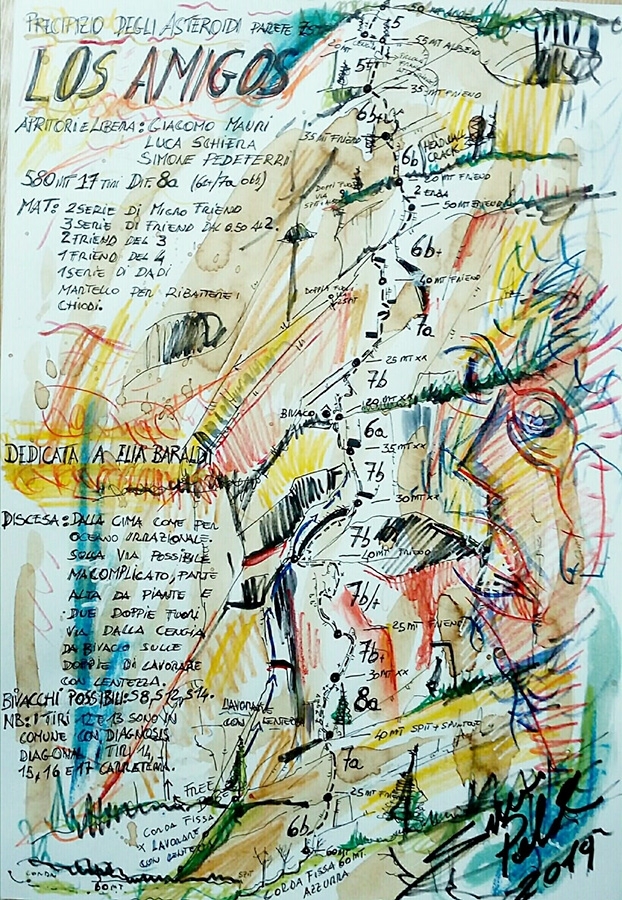 PRECIPIZIO DEGLI ASTEROIDI PARETE
LOS AMIGOS
APRITORI E LIBERA: GIACOMO MAURI
LUCA SCHIERA
SIMONE PEDEFERRI
580 MT 17 TIRI DIF. 8a (6b+/7a obb)
MAT: 2 SERIE DI MICRO FRIEND
3 SERIE DI FRIEND DAL 0.50 AL 2.
2 FRIEND DEL 3
1 FRIEND DEL 4
1 SERIE DI DADI
MARTELLO PER RIBATTERE I
CHIODI.
DEDICATA A ELIA BARALDI
DISCESA: DALLA CIMA COME PER
OCEANO IRRAZIONALE.
SULLA VIA POSSIBILE
MA COMPLICATO, PARTE
ALTA DA PIANTE E
DUE DOPPIE FUORI
VIA DALLA CENGIA
DA BIVACCO SULLE
DOPPIE DI LAVORARE
CON LENTEZZA.
BIVACCHI POSSIBILI: S8, S12, S14.
NB: I TIRI 12 E 13 SONO IN
COMUNE CON DIAGNOSIS
DIAGONAL I TIRI 14,
15, 16 E 17 CARRETERA.
5
55 MT ALBERO
20 MT
CENGIA
5+
35 MT FRIEND
6b+
35 MT FRIEND
6b
HEADWALL
CRACK
20 MT FRIEND
2 ERBA
50 MT FRIEND
6b+
40 MT FRIEND
DOPPIA FUORI
VIA
25 MT
7a
25 MT XX
7b
20 MT XX
BIVACO
6a
35 MT XX
7b
30 MT XX
7b
40 MT FRIEND
7b/+
25 MT FRIEND
7b+
30 MT XX
8a
LAVORARE
CON LENTEZZA
40 MT SPIT + SALITONE
7a
25 MT FRIEND
6b
FREE
CORDA FISSA
X LAVORARE
CON LENTEZZA
60 MT
CORDA FISSA 60 MT.
AZZURRA
CORDA
SPIT
60 MT
2019